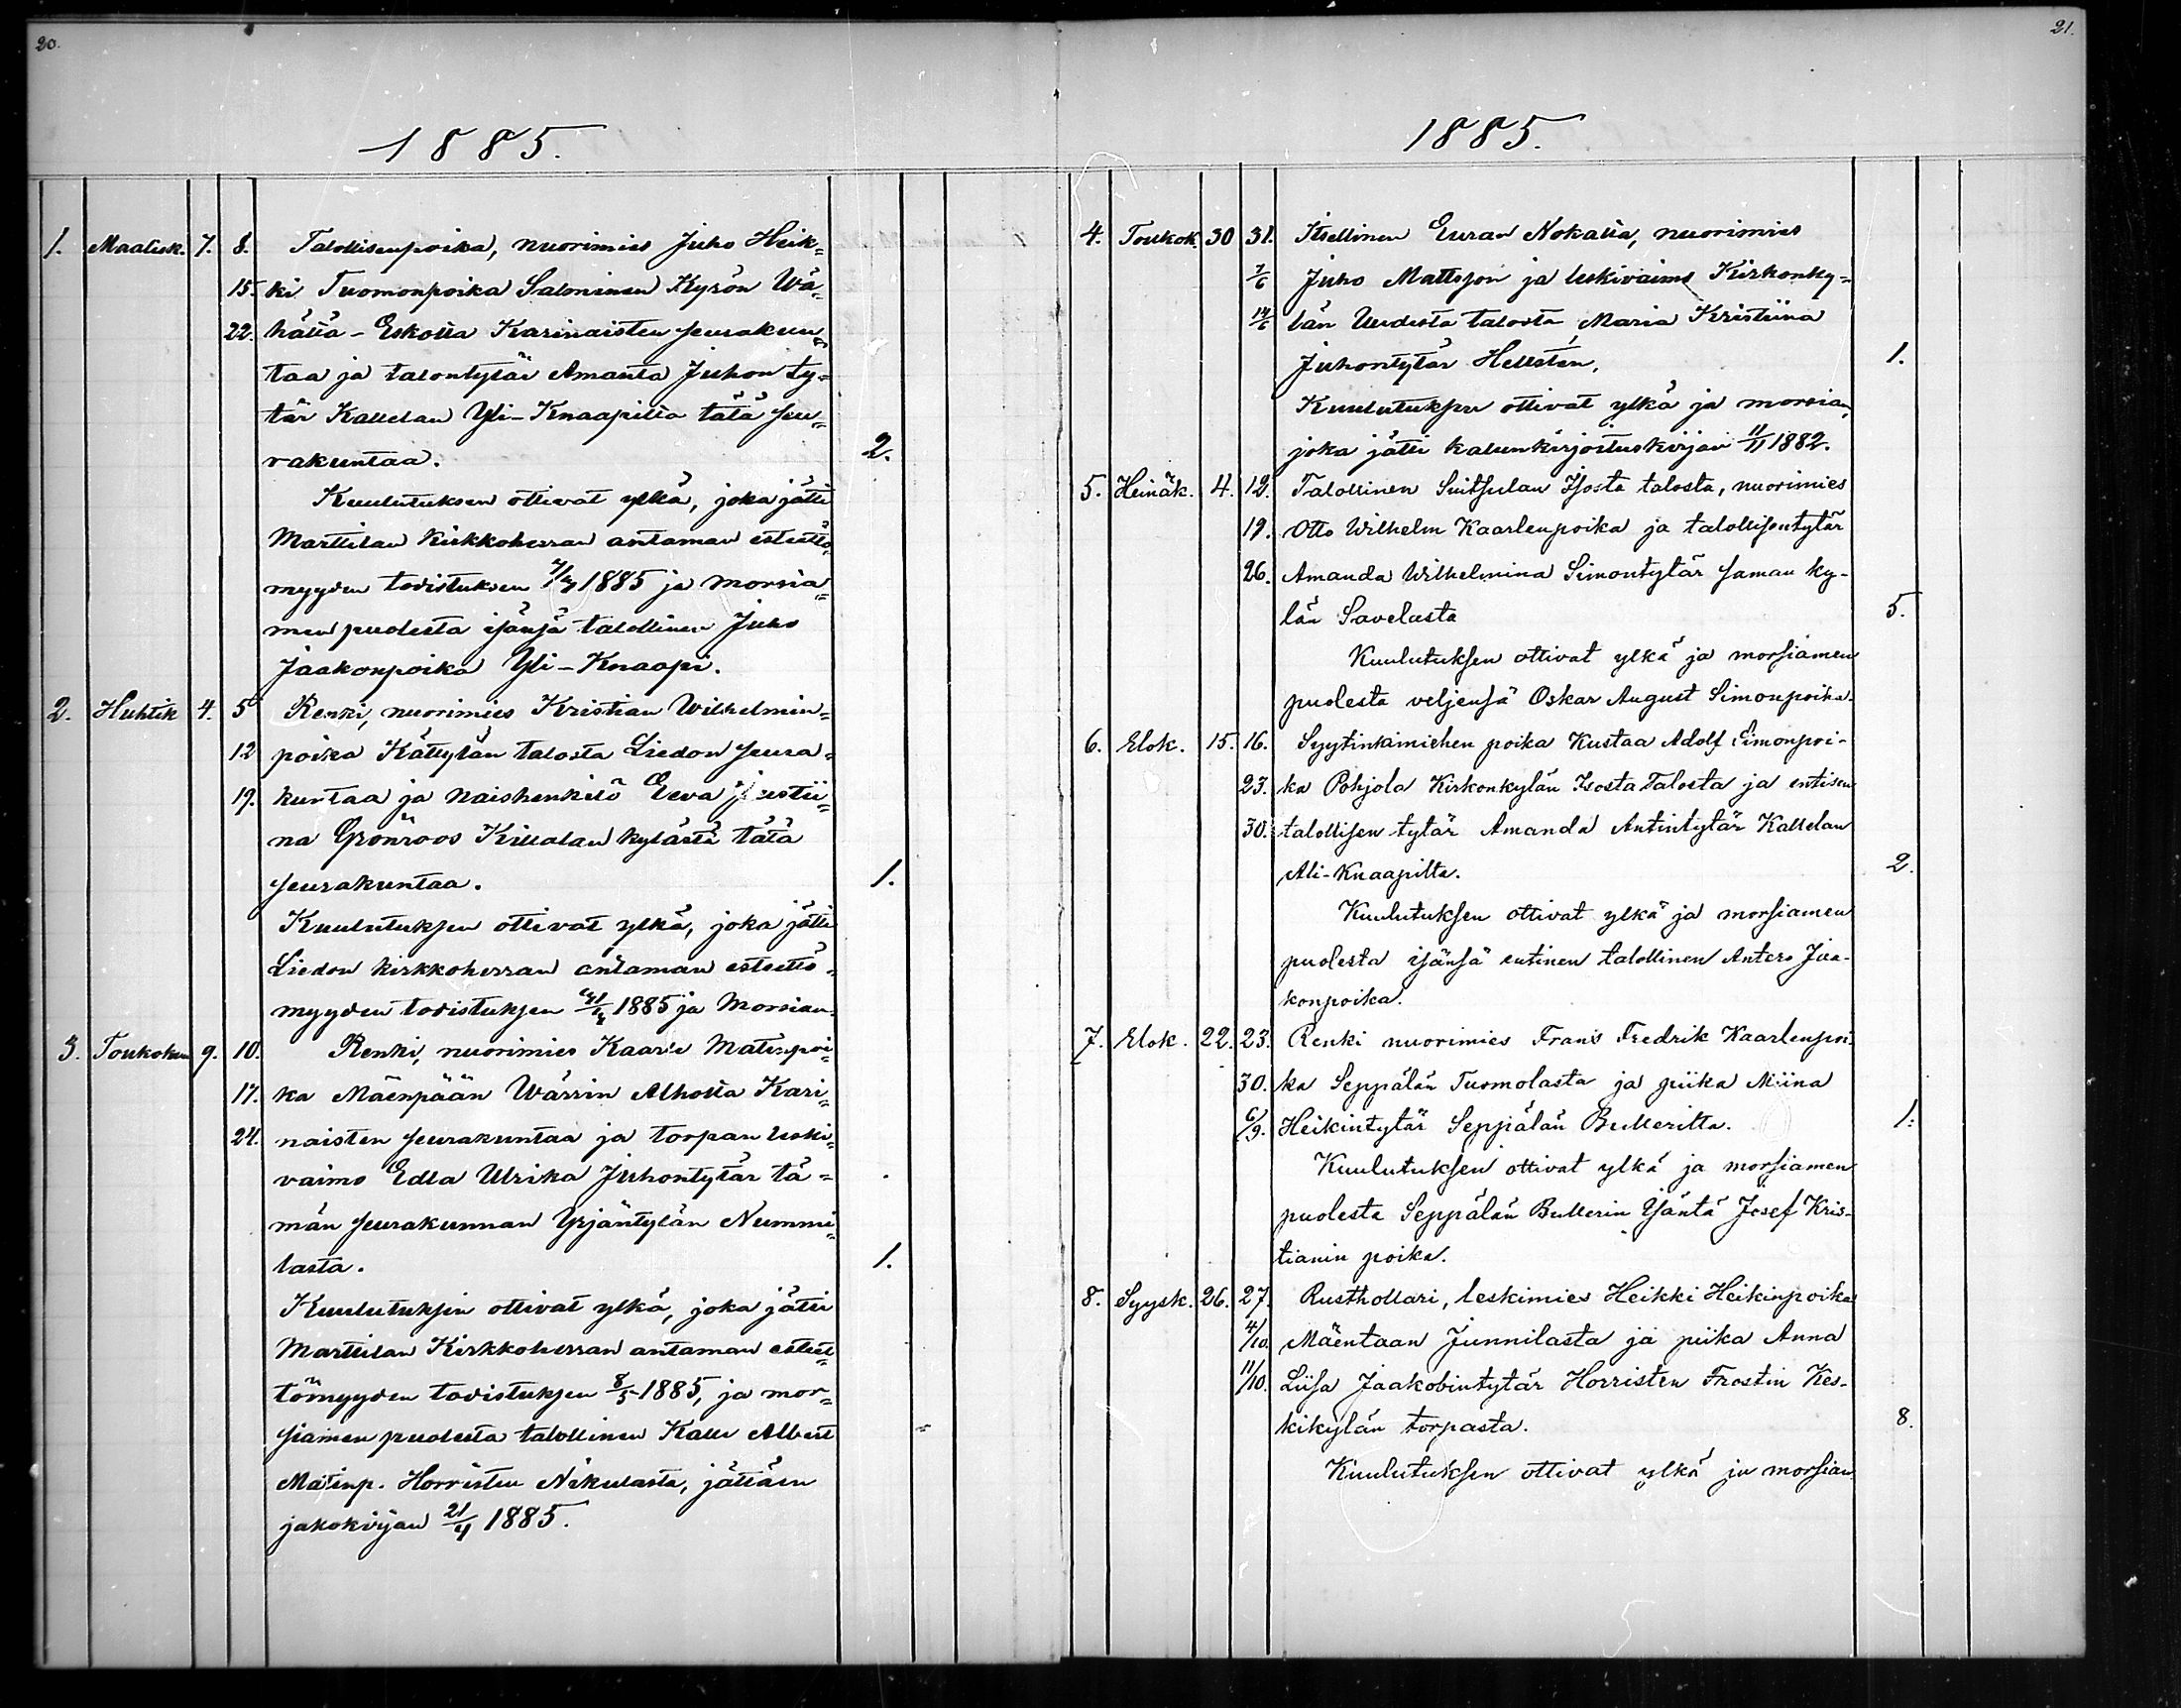 20.
1885.
1. Maalisk. 7. 8. Talollisenpoika, nuorimies Juho Heik=
15. ki Tuomonpoika Saloninen Kyrön Wä=
22. hältä-Eskolta Karinaisten seurakun=
taa ja talontytär Amanta Juhon ty=
tär Kallelan Yli-Knaapilta tätä seu=
rakuntaa. 2.
Kuulutuksen ottivat ylkä, joka jätti
Marttilan kirkkoherran antaman esteettö=
myyden todistuksen 1885 ja morsia=
men puolesta isänsä talollinen Juho
Jaakonpoika Yli-Knaapi.
2. Huhtik 4. 5 Renki, nuorimies Kristian Wilhelmin=
12 poika Kättylän talosta Liedon seura=
19. kuntaa ja naishenkilö Eeva Justii=
na Grönroos Killalan kylästä tätä
seurakuntaa. 1.
Kuulutuksen ottivat ylkä, joka jätti
Liedon kirkkoherran antaman esteettö=
myyden todistuksen 1885 ja Morsian.
3. Toukokuu 9. 10. Renki, nuorimies Kaarle Matinpoi=
17. ka Mäenpään Wärrin Alholta Kari=
24. naisten seurakuntaa ja torpan leski=
vaimo Edla Ulrika Juhontytär tä=
män seurakunnan Yrjäntylän Nummi=
lasta. 1.
Kuulutuksen ottivat ylkä, joka jätti
Marttilan Kirkkoherran antaman esteet=
tömyyden todistuksen 8/5 1885, ja mor=
siamen puolesta talollinen Kalle Albert
Matinp. Horristen Nikulasta, jättäen
jakokirjan 21/4 1885.
21.
1885.
4. Toukok. 30 31. Itsellinen Euran Nokalta, nuorimies
7/6 Juho Mattsson ja leskivaimo Kirkonky=
14/6 län Uudesta talosta Maria Kristiina
Juhontytär Hellsten. 1.
Kuulutuksen ottivat ylkä ja morsian,
joka jätti kalunkirjoituskirjan 11/11 1882.
5. Heinäk. 4. 12. Talollinen Suitsulan Isosta talosta, nuorimies
19. Otto Wilhelm Kaarlenpoika ja talollisentytär
26. Amanda Wilhelmina Simontytär saman ky-
län Savelasta 5.
Kuulutuksen ottivat ylkä ja morsiamen
puolesta veljensä Oskar August Simonpoika.
6. Elok. 15. 16. Syytinkimiehen poika Kustaa Adolf Simonpoi-
23. ka Pohjola Kirkonkylän Isosta Talosta ja entisen
30. talollisen tytär Amanda Antintytär Kallelan
Ali-Knaapilta. 2.
Kuulutuksen ottivat ylkä ja morsiamen
puolesta isänsä entinen talollinen Antero Jaa-
konpoika.
7. Elok. 22. 23. Renki nuorimies Frans Fredrik Kaarlenpoi-
30. ka Seppälän Tuomolasta ja piika Miina
6/9. Heikintytär Seppälän Bullerilta. 1.
Kuulutuksen ottivat ylkä ja morsiamen
puolesta Seppälän Bullerin Isäntä Josef Kris-
tianin poika.
8. Syysk. 26. 27. Rusthollari, leskimies Heikki Heikinpoika
4/10. Mäentaan Junnilasta ja piika Anna
11/10. Liisa Jaakobintytär Horristen Frostin Kes-
kikylän torpasta. 8.
Kuulutuksen ottivat ylkä ja morsian